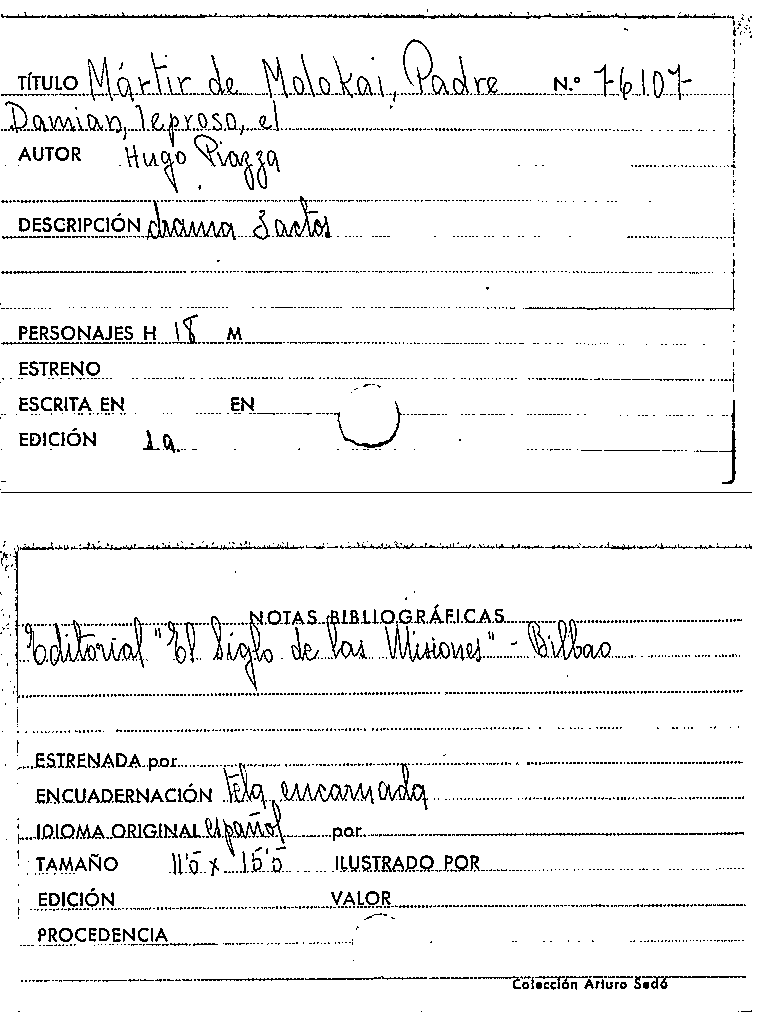 TÍTULO Mártir de Molokai, Padre N.º 76107
Damian, leproso, el
AUTOR Hugo Piazza
DESCRIPCIÓN drama 3 actos
PERSONAJES H 18 M
ESTRENO
ESCRITA EN EN
EDICIÓN 1a
NOTAS BIBLIOGRÁFICAS
Editorial "El Siglo de las Misiones" - Bilbao
ESTRENADA por
ENCUADERNACIÓN tela encarnada
IDIOMA ORIGINAL español por
TAMAÑO 11'5 x 15'5 ILUSTRADO POR
EDICIÓN VALOR
PROCEDENCIA
Colección Arturo Sedó